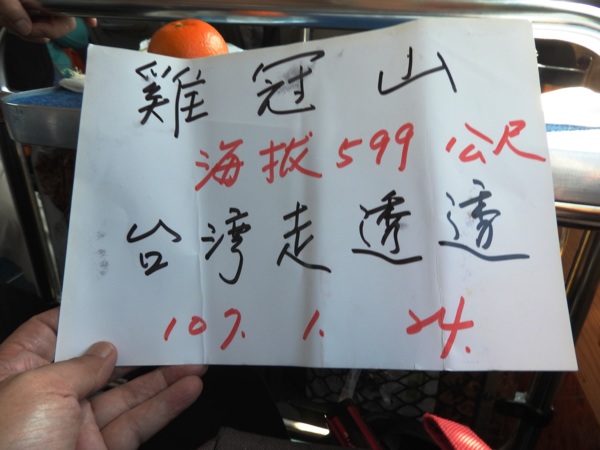 雞冠山
海拔599公尺
台湾走透透
107.1.24.